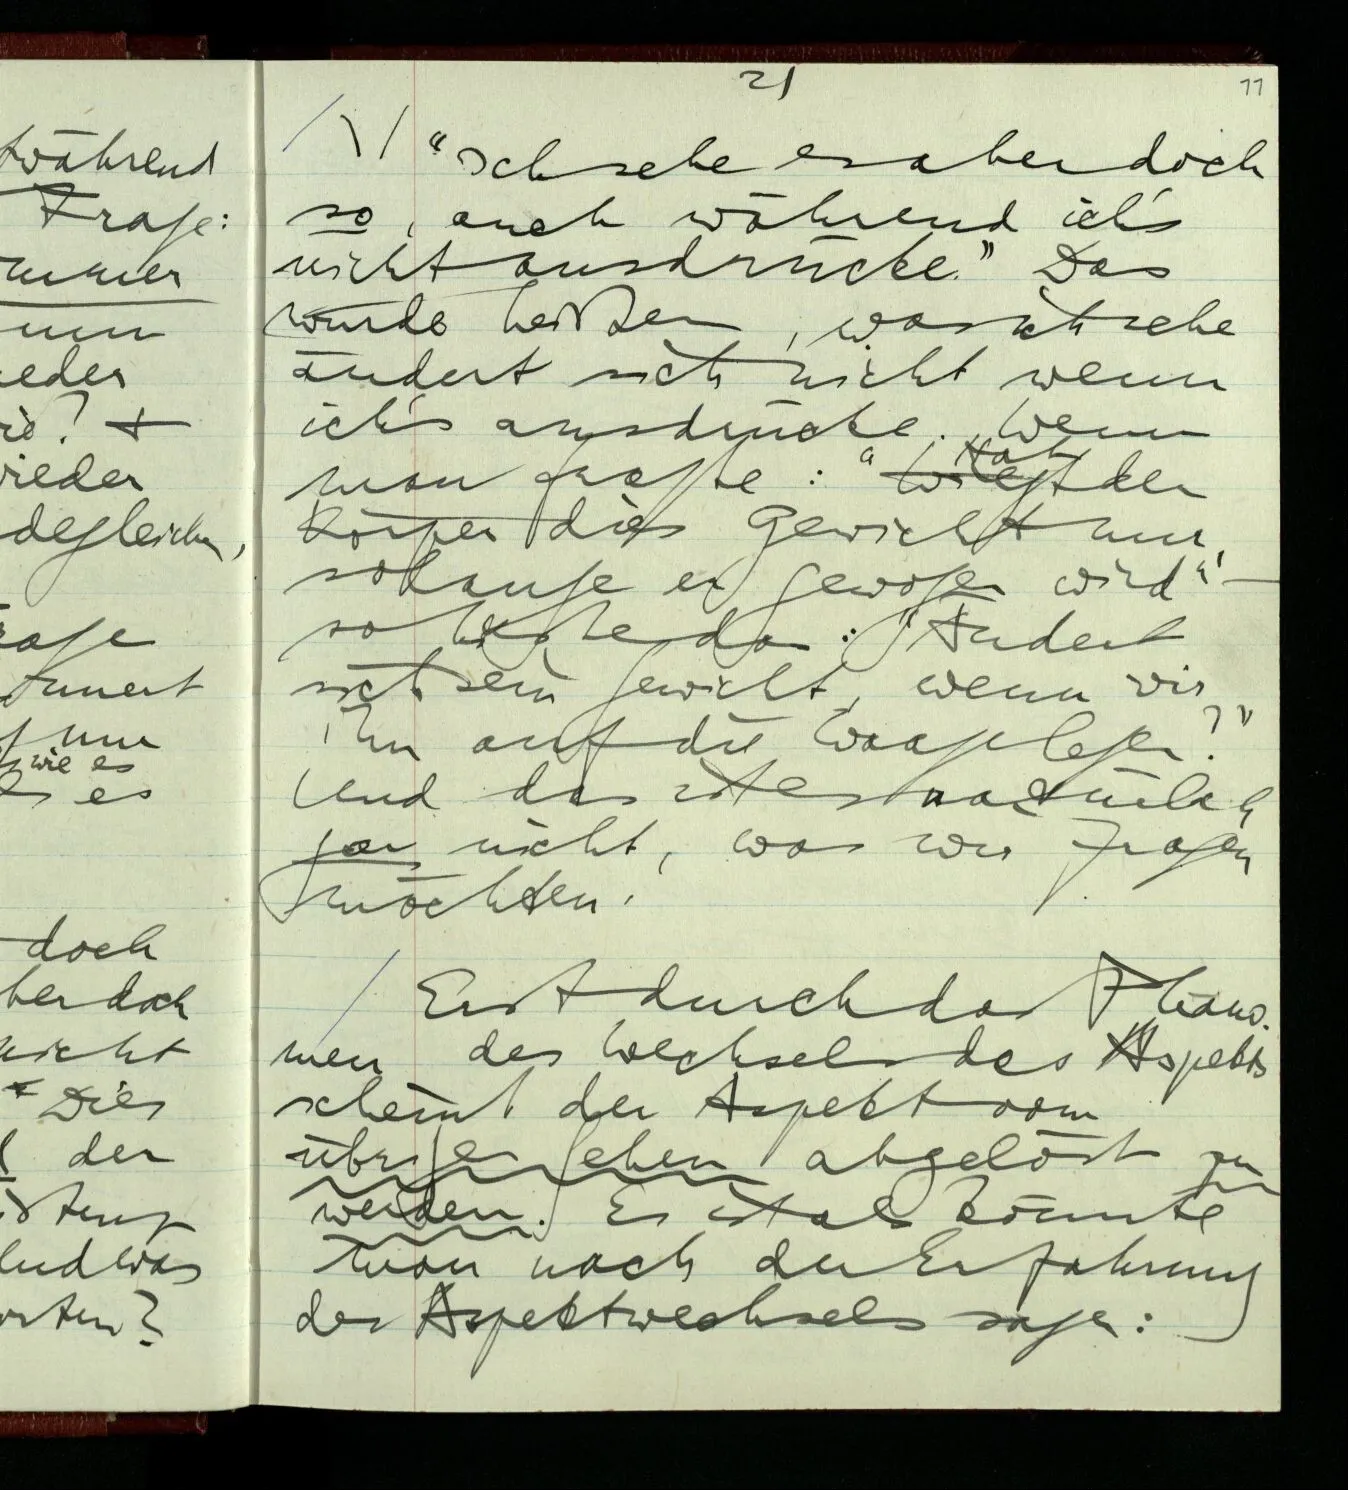 während
Frage:
immer
nun
jeder
wie? +
wieder
desgleichen,
Frage
nur
wie es
es
doch
aber doch
nicht
Dies
der
Und was
21
11
\ / "Ich sehe es aber doch
so, auch während ich's
nicht ausdrücke." Das
würde heißen, was ich sehe
ändert sich nicht wenn
ich's ausdrücke. Wenn
man fragte: "Wiegt Hat der
Körper dies Gewicht nur,
solange er gewogen wird" –
so hieße da: "Ändert
sich sein Gewicht, wenn wir
ihn auf die Waage legen?"
Und das ist es natürlich
gar nicht, was wir fragen
möchten.
/ Erst durch das Phäno-
men des Wechsels des Aspekts
scheint der Aspekt vom
übrigen Sehen abgelöst zu
werden. Es ist als könnte
man nach der Erfahrung
des Aspektwechsels sagen: